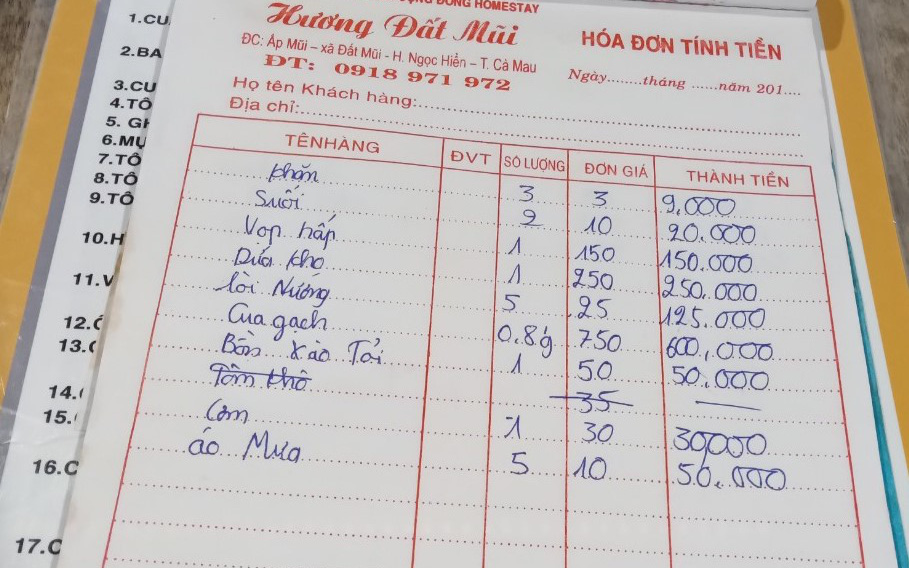 ĐỒNG HOMESTAY
Hương Đất Mũi
ĐC: Ấp Mũi – xã Đất Mũi - H. Ngọc Hiển – T. Cà Mau
ĐT: 0918 971 972
HÓA ĐƠN TÍNH TIỀN
Ngày........tháng ......năm 201....
Họ tên Khách hàng:
Địa chỉ:
TÊN HÀNG ĐVT SỐ LƯỢNG ĐƠN GIÁ THÀNH TIỀN
khăn 3 3 9.000
Suối 2 10 20.000
Vop hấp 1 150 150.000
Dứa kho 1 250 250.000
lòi Nướng 5 25 125.000
Cua gạch 0.8 750 600.000
Bồn Xào Tỏi 1 50 50.000
Tôm khô 35
Cơm 1 30 30,000
áo Mưa 5 10 50.000
1.CU
2.BA
3.CU
4.TÔ
5. GH
6.MỰ
7.TÔ
8.TÔ
9.TÔ
10.H
11.V
12.
13.
14.
15.
16.C
17.C